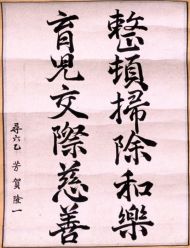 整頓掃除和樂
育児交際慈善
尋六乙 芳賀隆一